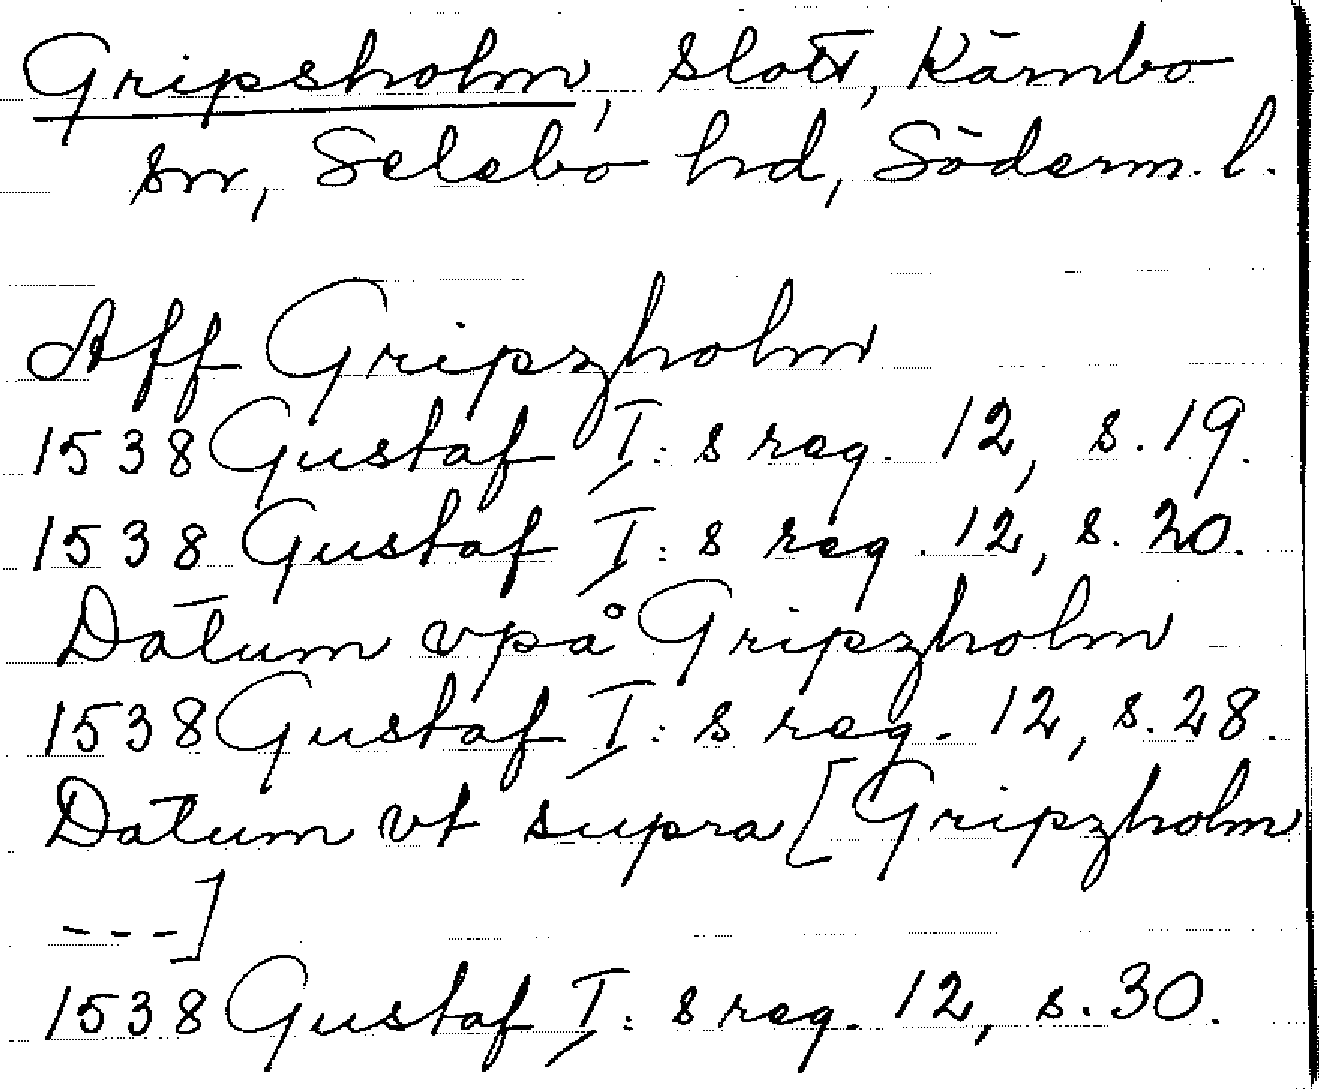 Gripsholm, slott, Kärnbo
sn, Selebo hd, Söderm. l.
Aff Gripzholm
1538 Gustaf I: s reg. 12, s. 19.
1538 Gustaf I: s reg. 12, s. 20.
Datum vpå Gripzholm
1538 Gustaf I: s reg. 12, s. 28.
Datum vt supra [Gripzholm
---]
1538 Gustaf I: s reg. 12, s. 30.